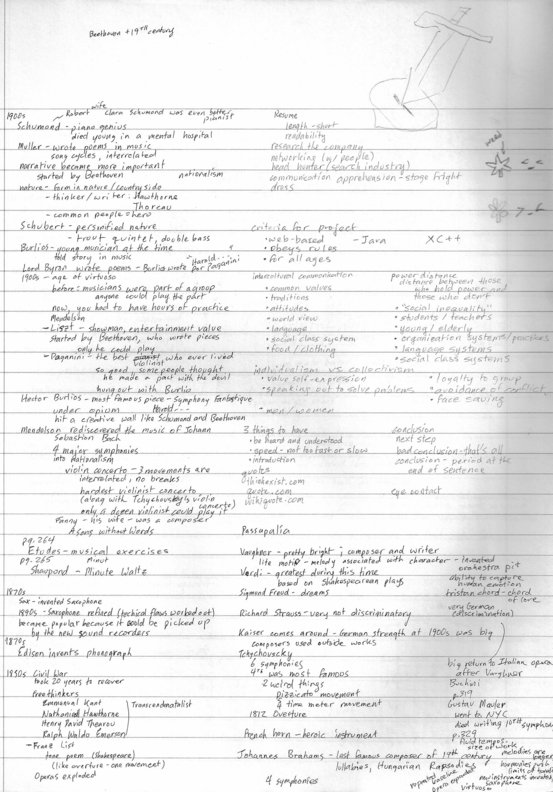 Beethoven + 19TH century
1900s
wife
Robert Clara Schumond was even better pianist
Schumond - piano genius
died young in a mental hospital
Mullar - wrote poems in music
song cycles, interrelated
narrative became more important
started by Beethoven nationalism
nature - form in nature / countryside
- thinker / writer: Hawthorne
Thoreau
- common people = hero
Schubert - personified nature
- trout quintet, double bass
Burlios - young musician at the time
told story in music
Harold...
Lord Byran wrote poems - Burlios wrote for Paganini
1900s - age of virtuoso
before: musicians were part of a group
anyone could play the part
now, you had to have hours of practice
Mendolson
- Liszt - showman, entertainment value
started by Beethoven, who wrote pieces
only he could play
- Paganini - the best violinist who ever lived
so good, some people thought
he made a part with the devil
hung out with Burlio
Hector Burlios - most famous piece - Symphony Fantastique
under opium Harold...
hit a creative wall like Schumond and Beethoven
Mondolson rediscovered the music of Johann
Sebastian Bach
4 major symphonies
into Nationalism
violin concerto - 3 movements are
interrelated, no breaks
hardest violinist concerto
(along with Tchychovsky's violin
concerto)
only a dozen violinist could play it
Fanny - his wife - was a composer
A song without Words
pg. 264
Etudes - musical exercises
pg. 265 Minut
Showpond - Minute Waltz
1870s
Sax - invented Saxophone
1890s - Saxophone refined (techical flaws worked out)
became popular because it could be picked up
by the new sound recorders
1870s
Edison invents phonograph
1830s Civil War
took 20 years to recover
freethinkers
Emmanual Kant
Nathanial Hawthorne Transcendatalist
Henry David Thearou
Ralph Waldo Emerson
- Franz List
tone poem (Shakespeare)
(like overture - one movement)
Operas exploded
Resume
length - short
readability
research the company
networking (w/ people)
head hunter (search industry)
communication apprehension - stage fright
dress
criteria for project
• web-based - Java XC++
• obeys rules
• for all ages
intercultural communication
• common values
• traditions
• attitudes
• world view
• language
• social class system
• food / clothing
power distance
distance between those
who hold power and
those who don't
• "social inequality"
• students / teachers
• young / elderly
• organization systems / practices
• language systems
• social class systems
individualism vs collectivism
• value self-expression • loyalty to group
• speaking out to solve problems • avoidance of conflict,
• face saving
• men / women
3 things to have
• be heard and understood
• speed - not too fast or slow
• introduction
conclusion
next step
bad conclusion - that's all
conclusion - period at the
end of sentence
quotes
quote.com
wikiquote.com
eye contact
Passapalia
Vaughner - pretty bright; composer and writer
lite motif - melody associated with character - invented
orchestra pit
Verdi - greatest during this time
based on Shakespearean plays
ability to capture
human emotion
Sigmund Freud - dreams
tristan chord - chord
of love
Richard Strauss - very not discriminatory
very German
(discrimination)
Kaiser comes around - German strength at 1900s was big
composers used outside works
Tchychovscky
6 symphonies
4TH was most famous
2 weird things
pizzicato movement
4 time meter movement
1812 Overture
French horn - heroic instrument
big return to Italian opera
after Vaughner
p.319
Gustav Mauler
went to NYC
died writing 10TH symphony
p.329
fluid tempos
size of work
Johannes Brahams - last famous composer of 19TH century
lullabies, Hungarian Rapsodies
4 symphonies
repeated baseline
opera expanded
melodies are longer
composers push
limits of tonality
new instruments invented
saxophone
virtuoso